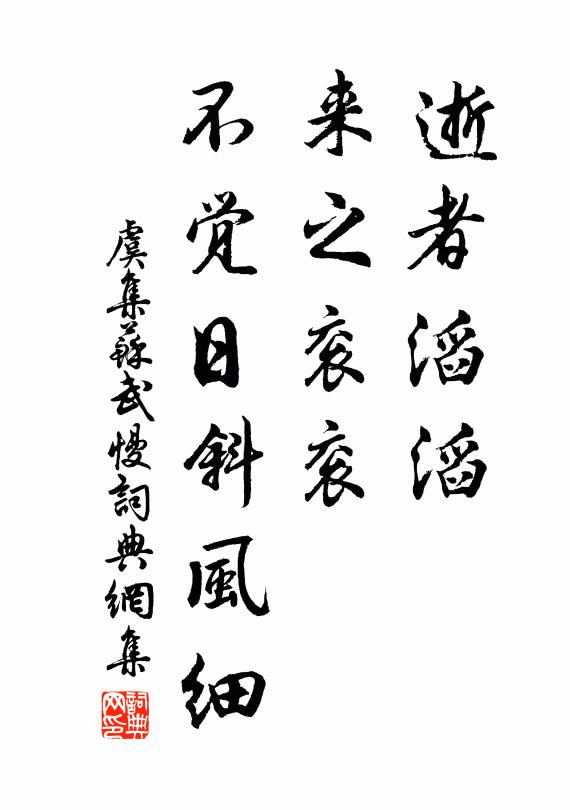 逝者滔滔
来之衮衮
不觉日斜風细
虞集蘇武慢詞典網集
詞典网印